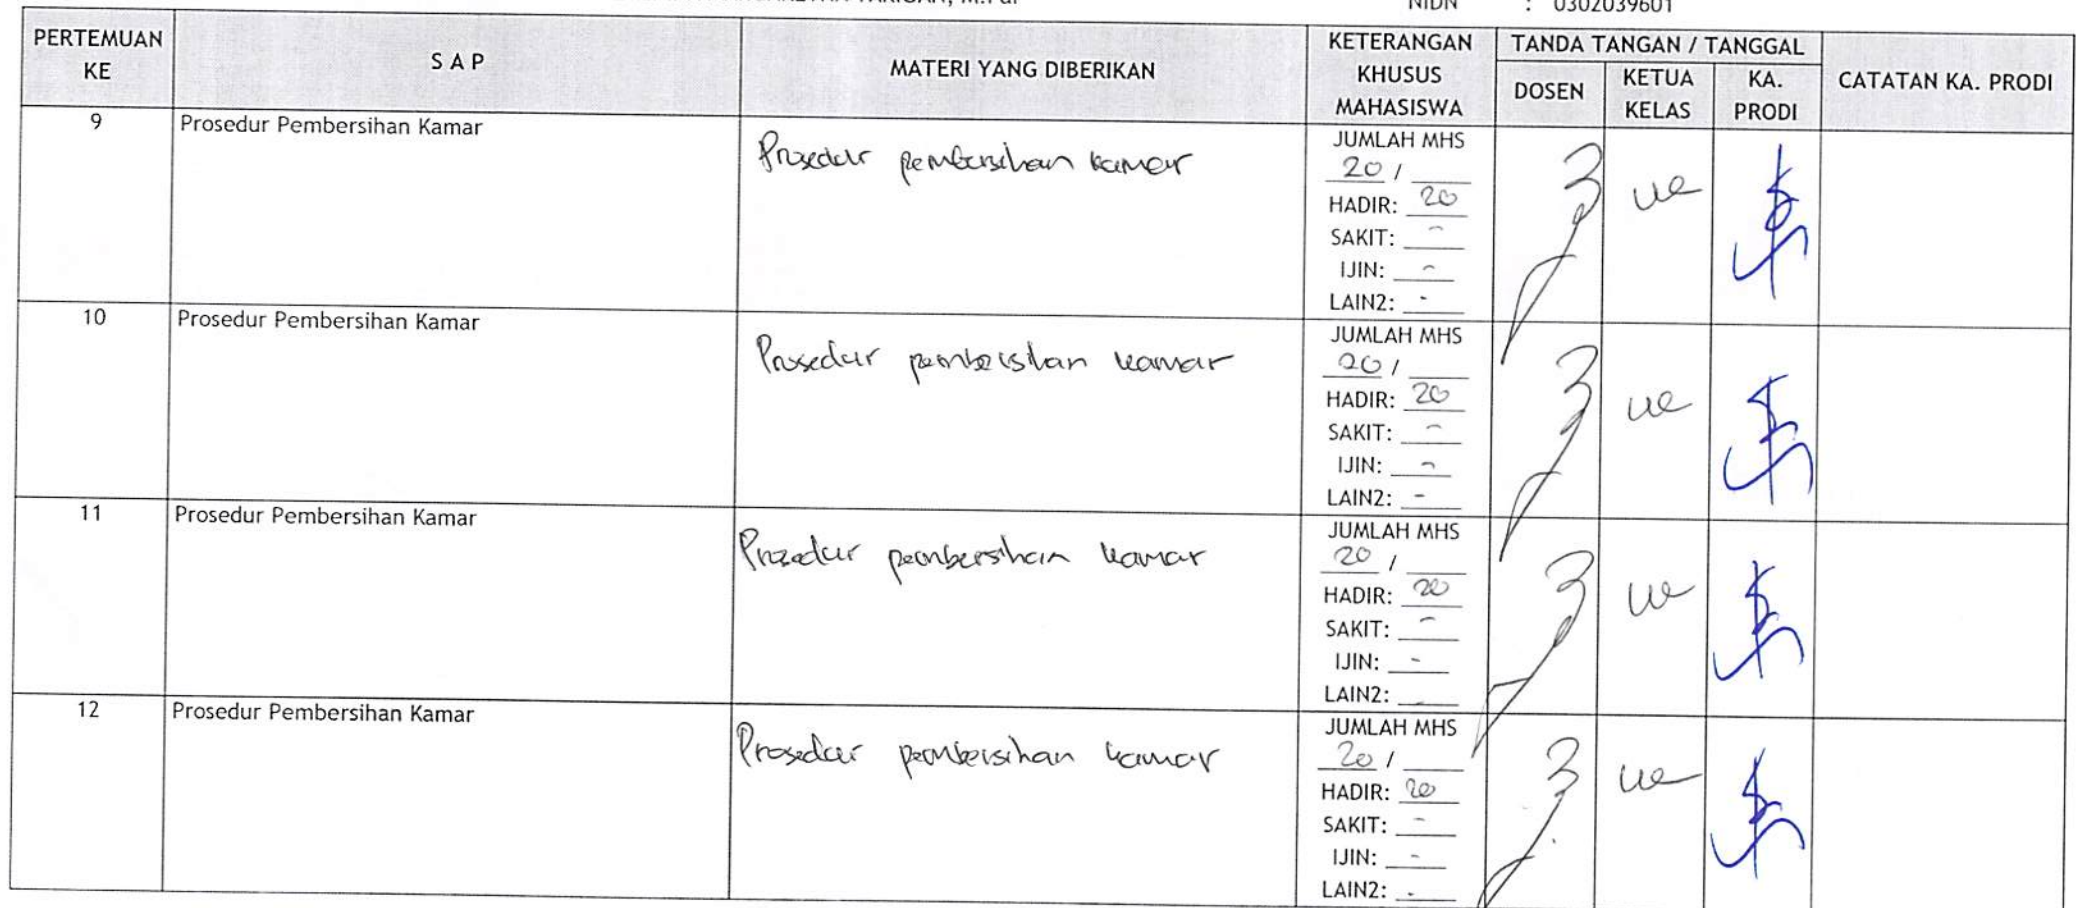 TARIGAN, M.Par
NIDN : 0302039601
PERTEMUAN KE
S A P
MATERI YANG DIBERIKAN
KETERANGAN KHUSUS MAHASISWA
TANDA TANGAN / TANGGAL
DOSEN
KETUA KELAS
KA. PRODI
CATATAN KA. PRODI
9
Prosedur Pembersihan Kamar
Prosedur pembersihan kamar
JUMLAH MHS
20 /
HADIR: 20
SAKIT: -
IJIN: -
LAIN2: -
10
Prosedur Pembersihan Kamar
Prosedur pembersihan kamar
JUMLAH MHS
20 /
HADIR: 20
SAKIT: -
IJIN: -
LAIN2: -
11
Prosedur Pembersihan Kamar
Prosedur pembersihan kamar
JUMLAH MHS
20 /
HADIR: 20
SAKIT: -
IJIN: -
LAIN2: -
12
Prosedur Pembersihan Kamar
Prosedur pembersihan kamar
JUMLAH MHS
20 /
HADIR: 20
SAKIT: -
IJIN: -
LAIN2: -